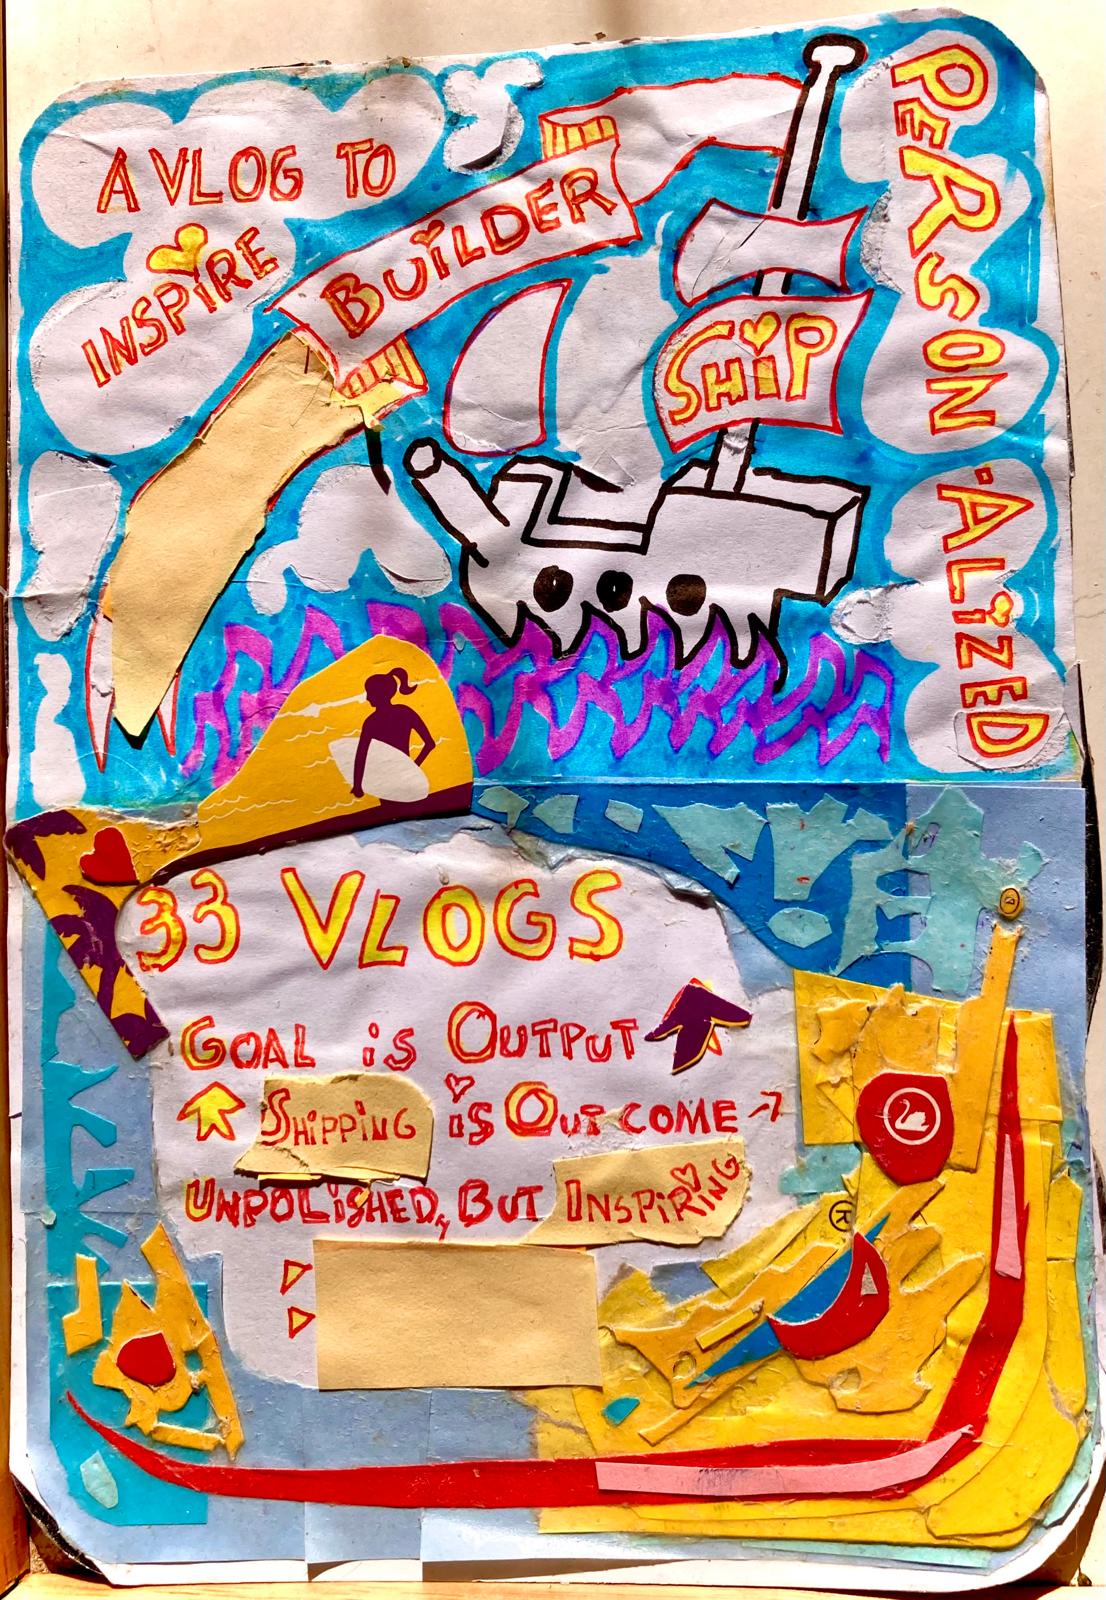 A VLOG TO
INSPIRE
BUILDER
SHIP
PERSON-ALIZED
33 VLOGS
GOAL is OUTPUT
SHIPPING is OUTCOME
UNPOLISHED, BUT INSPIRING